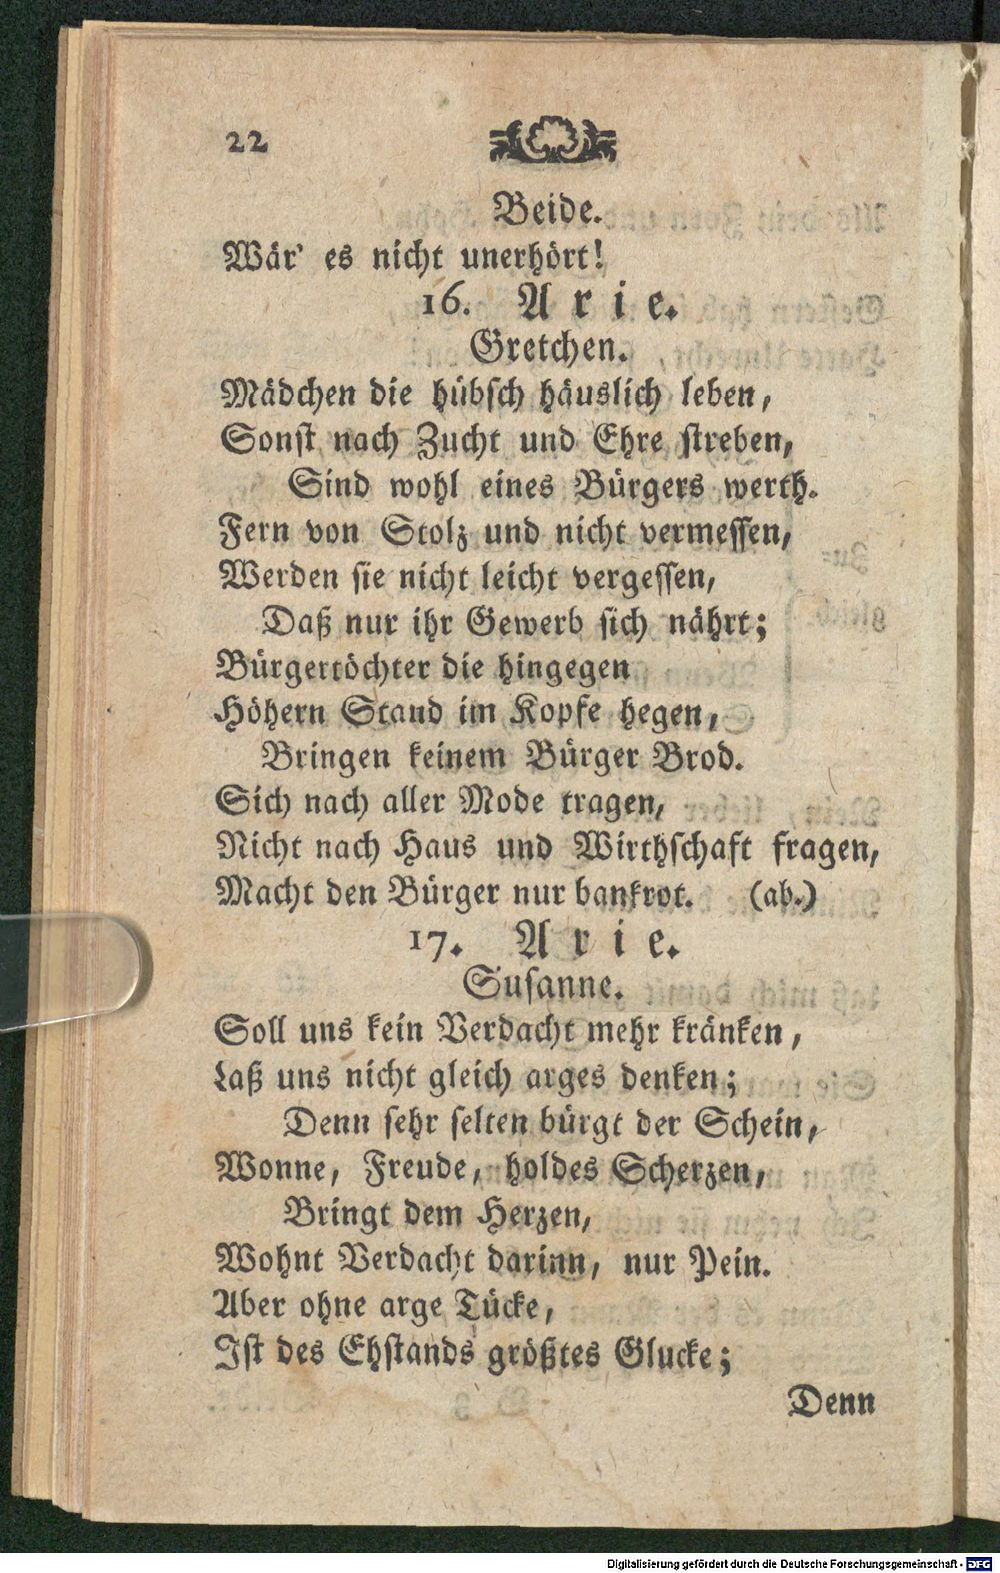 22
Beide.
Wär' es nicht unerhört!
16. Arie.
Gretchen.
Mädchen die hübsch häuslich leben,
Sonst nach Zucht und Ehre streben,
Sind wohl eines Bürgers werth.
Fern von Stolz und nicht vermessen,
Werden sie nicht leicht vergessen,
Daß nur ihr Gewerb sich nährt;
Bürgertöchter die hingegen
Höhern Stand im Kopfe hegen,
Bringen keinem Bürger Brod.
Sich nach aller Mode tragen,
Nicht nach Haus und Wirthschaft fragen,
Macht den Bürger nur bankrot. (ab.)
17. Arie.
Susanne.
Soll uns kein Verdacht mehr kränken,
Laß uns nicht gleich arges denken;
Denn sehr selten bürgt der Schein,
Wonne, Freude, holdes Scherzen,
Bringt dem Herzen,
Wohnt Verdacht darinn, nur Pein.
Aber ohne arge Tücke,
Ist des Ehstands größtes Glucke;
Denn
Digitalisierung gefördert durch die Deutsche Forschungsgemeinschaft - DFG